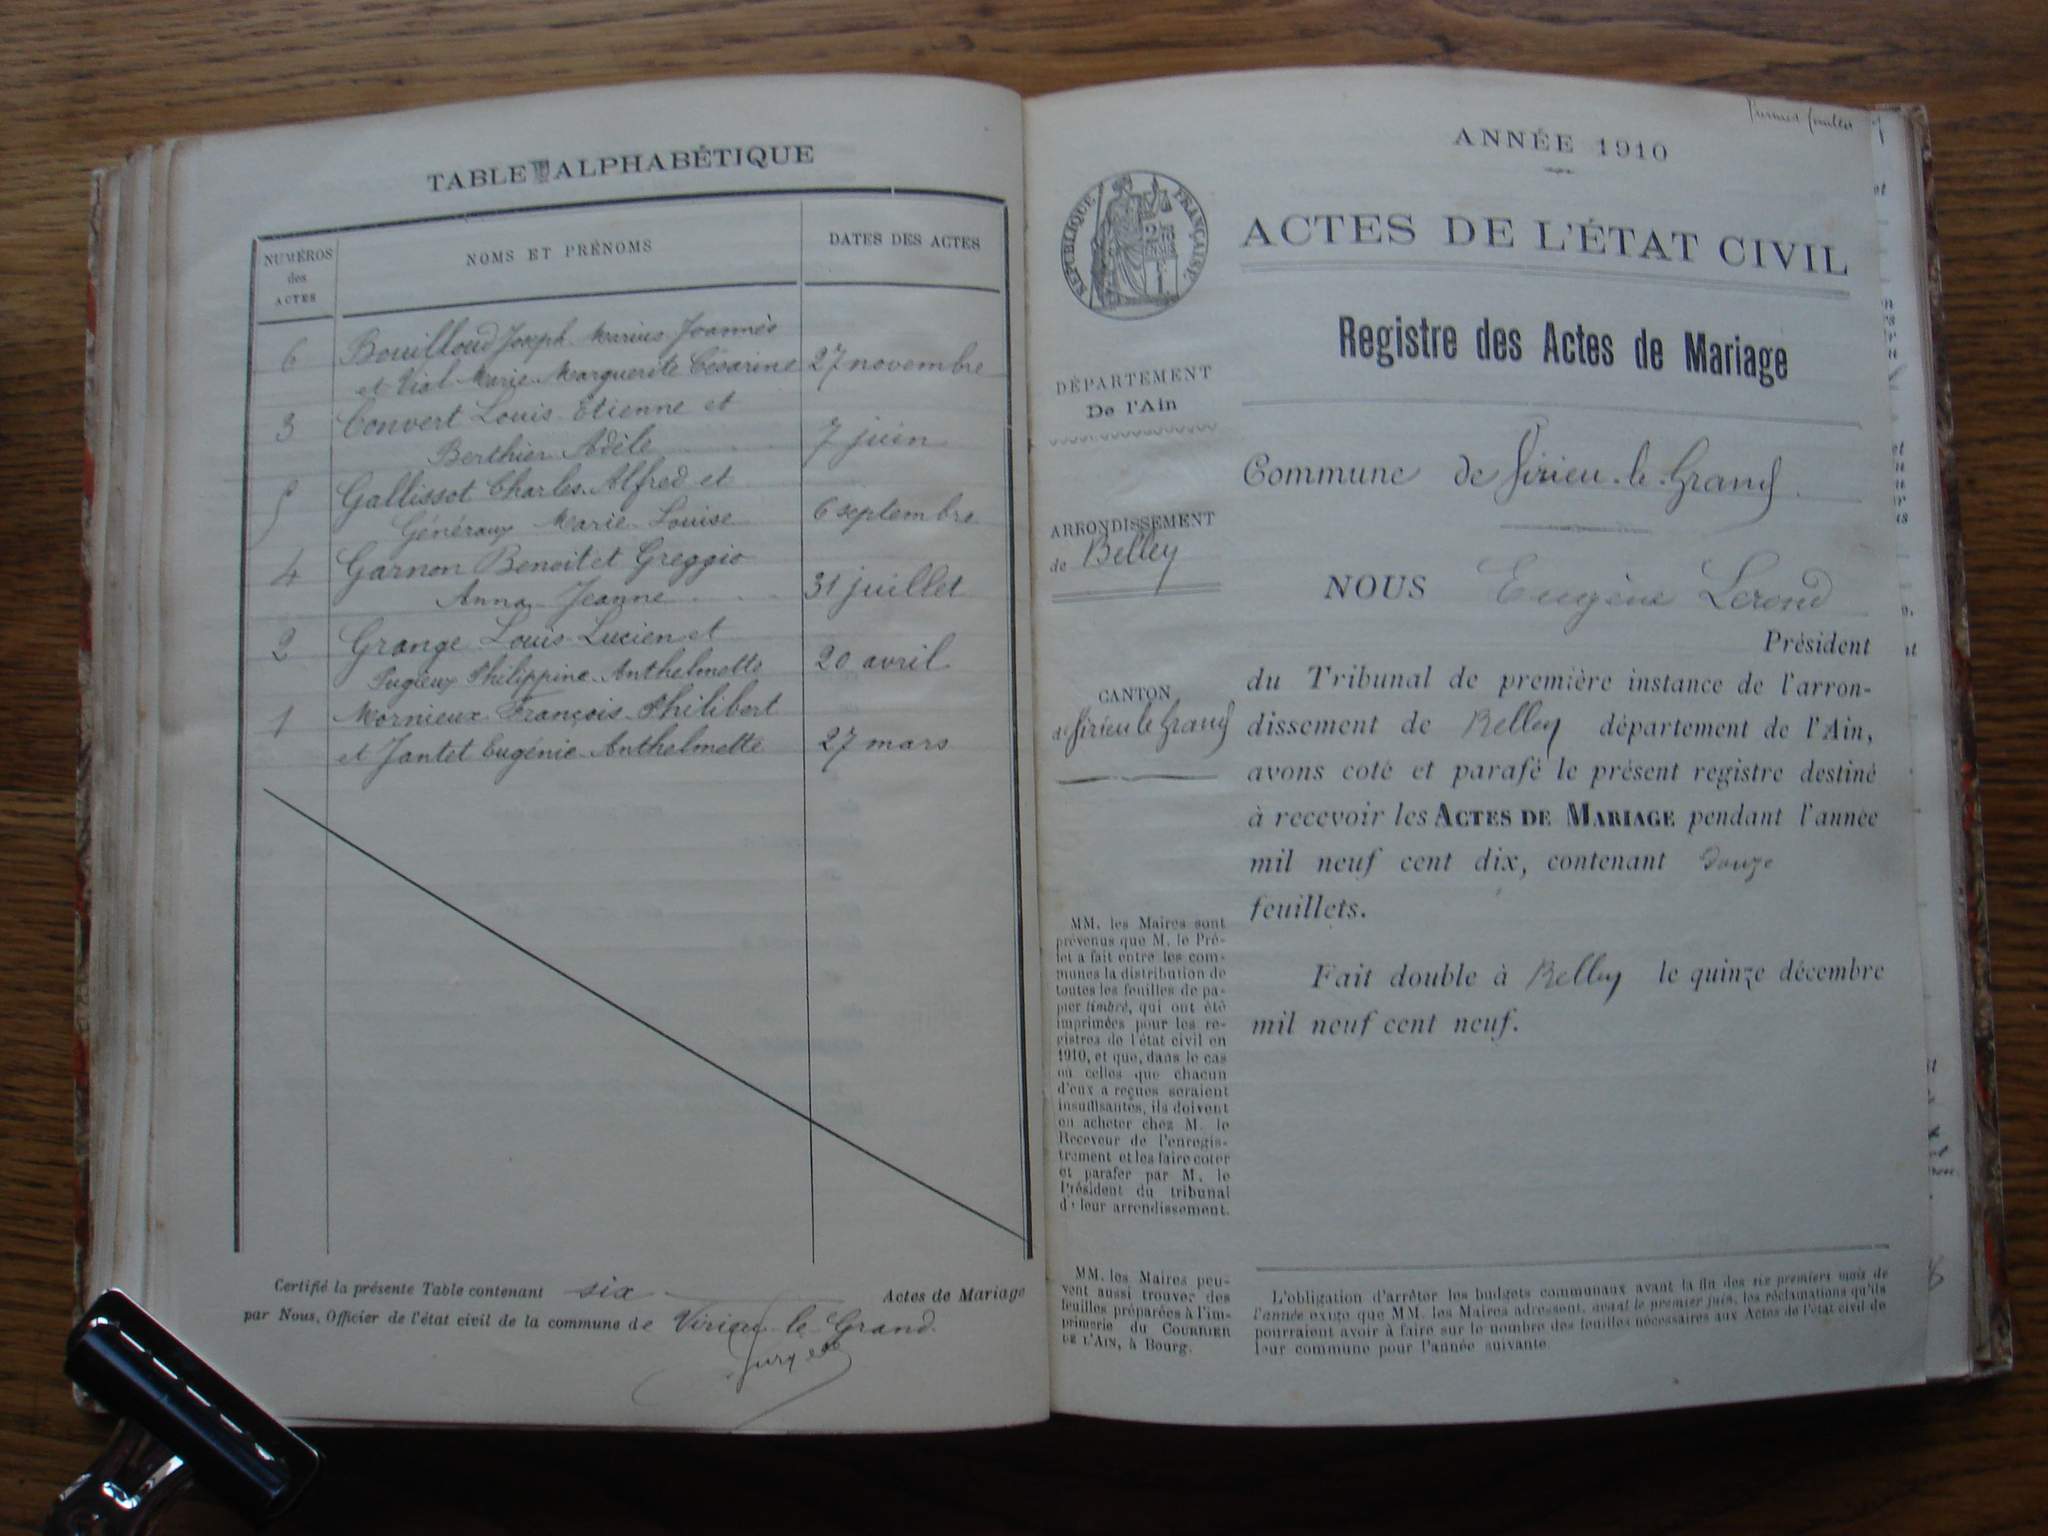 TABLE ALPHABÉTIQUE
NUMÉROS des ACTES
NOMS ET PRÉNOMS
DATES DES ACTES
6 Bouilloud Joseph Marius Joannès
et Vial Marie Marguerite Césarine 27 novembre
3 Convert Louis Etienne et
Berthier Adèle 7 juin
5 Gallissot Charles Alfred et
Généraux Marie Louise 6 septembre
4 Garnon Benoit et Greggio
Anna Jeanne 31 juillet
2 Grange Louis Lucien et
Pugieux Philippine Anthelmette 20 avril
1 Mornieux François Philibert
et Jantet Eugénie Anthelmette 27 mars
Certifié la présente Table contenant six Actes de Mariage
par Nous, Officier de l'état civil de la commune de Virieu-le-Grand.
ANNÉE 1910
RÉPUBLIQUE FRANÇAISE
ACTES DE L'ÉTAT CIVIL
Registre des Actes de Mariage
DÉPARTEMENT
De l'Ain
ARRONDISSEMENT
de Belley
CANTON
de Virieu le Grand
MM. les Maires sont
prévenus que M. le Pré-
fet a fait entre les com-
munes la distribution de
toutes les feuilles de pa-
pier timbré, qui ont été
imprimées pour les re-
gistres de l'état civil en
1910, et que, dans le cas
où celles que chacun
d'eux a reçues seraient
insuffisantes, ils doivent
en acheter chez M. le
Receveur de l'enregis-
trement et les faire coter
et parafer par M. le
Président du tribunal
de leur arrondissement.
MM. les Maires peu-
vent aussi trouver des
feuilles préparées à l'im-
primerie du COURRIER
DE L'AIN, à Bourg.
Commune de Virieu-le-Grand
NOUS Eugène Lerond
Président
du Tribunal de première instance de l'arron-
dissement de Belley département de l'Ain,
avons coté et parafé le présent registre destiné
à recevoir les ACTES DE MARIAGE pendant l'année
mil neuf cent dix, contenant douze
feuillets.
Fait double à Belley le quinze décembre
mil neuf cent neuf.
L'obligation d'arrêter les budgets communaux avant la fin des six premiers mois de
l'année exige que MM. les Maires adressent, avant le premier juin, les réclamations qu'ils
pourraient avoir à faire sur le nombre des feuilles nécessaires aux Actes de l'état civil de
leur commune pour l'année suivante